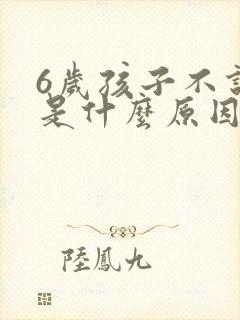 6歲孩子不
是什麼原因
陸鳳九